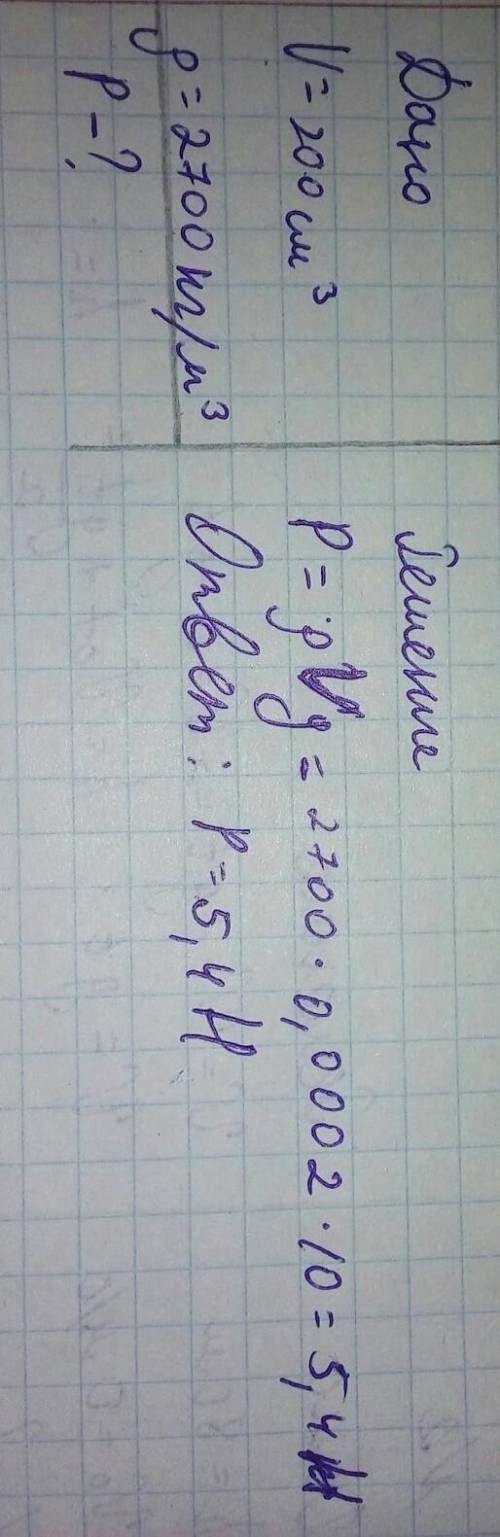 Дано
V = 200 см³
ρ = 2700 кг/м³
P - ?
Решение
P = ρVg = 2700 · 0,0002 · 10 = 5,4 Н
Ответ: P = 5,4 Н